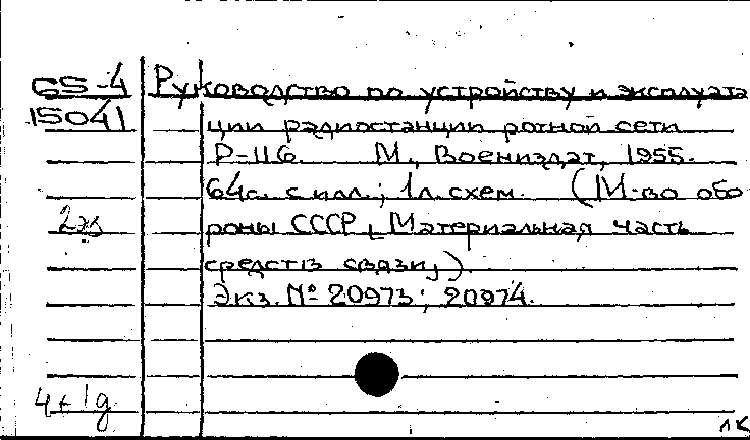 65-4 Руководство по устройству и эксплуата
15041 ции радиостанции ротной сети
Р-116. М., Воениздат, 1955.
64с. с илл.; 1л. схем. (М-во обо
2эк роны СССР, Материальная часть
средств связи,).
Экз. № 20973; 20974.
4+1д
лк